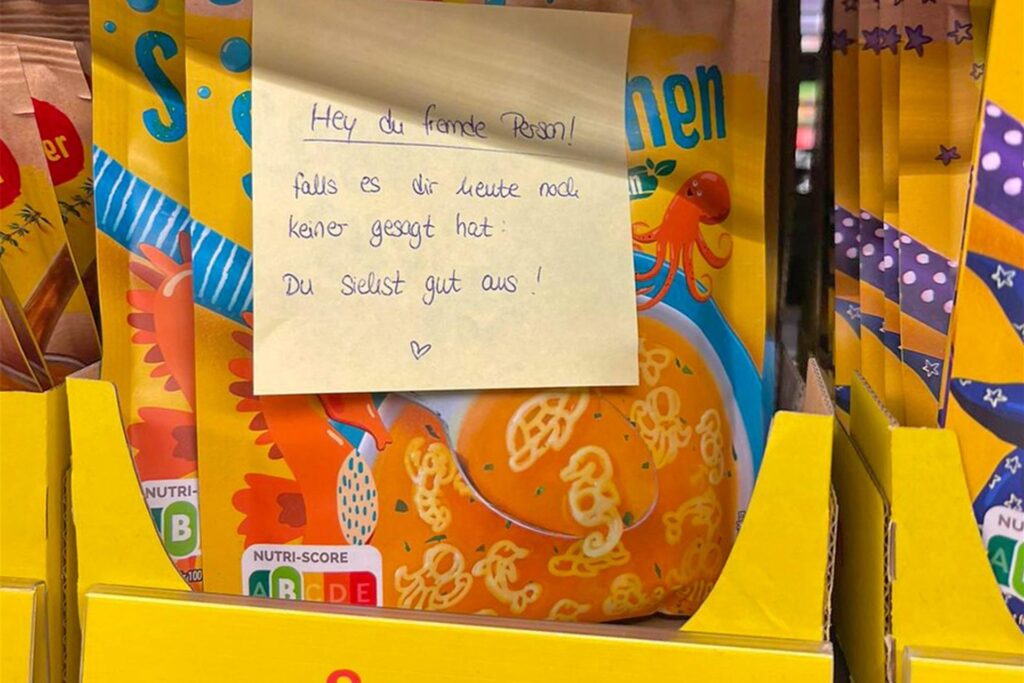 Hey du fremde Person!
falls es dir heute noch
keiner gesagt hat:
Du siehst gut aus!
er
S
nen
NUTRI-
B
100
NUTRI-SCORE
A B C D E
NU
A